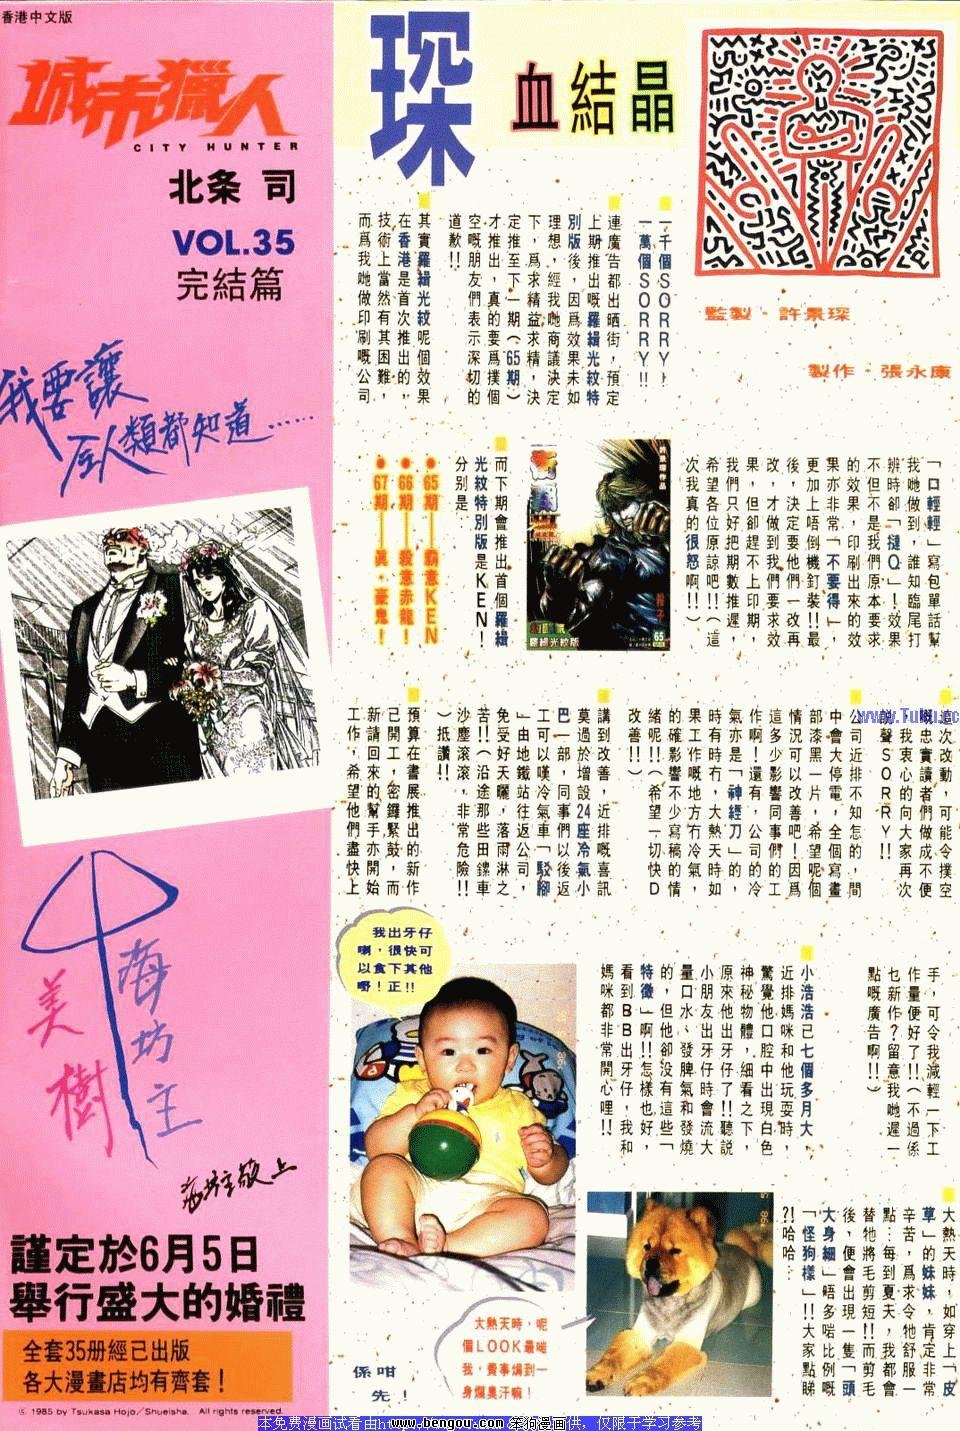 香港中文版
城市獵人
CITY HUNTER
北条 司
VOL.35
完結篇
我要讓
全人類都知道……
海坊主
美樹
海坊主敬上
謹定於6月5日
舉行盛大的婚禮
全套35册經已出版
各大漫畫店均有齊套！
© 1985 by Tsukasa Hojo/Shueisha. All rights reserved.
琛
血結晶
監製·許景琛
製作·張永康
一千個SORRY！
一萬個SORRY!!
連廣告都出晒街，預定
上期推出嘅羅緝光紋特
別版後，因爲效果未如
理想，經我哋商議決定
下，爲求精益求精，決
定推至下一期（65期）
才推出，真的要爲撲個
空嘅朋友們表示深切的
道歉!!
其實羅緝光紋呢個效果
在香港是首次推出的，
技術上當然有其困難，
而爲我哋做印刷嘅公司
「口輕輕」寫包單話幫
我哋做到，誰知臨尾打
辨時卻「撻Q」！效果
不但不是我們原本要求
的效果，印刷出來的效
果亦非常「不要得」，
更加上唔倒機釘裝!!最
後，決定要他們一改再
改，才做到我們要求效
果，但卻趕不上印期，
我們只好把期數推遲，
希望各位原諒吧!!（這
次我真的很怒啊!!）
許景琛作品
65
羅緝光紋版
而下期會推出首個羅緝
光紋特別版是KEN！
分別是：
●65期——霸意KEN
●66期——殺意赤龍！
●67期——眞·豪鬼！
這次改動，可能令撲空
嘅忠實讀者們做成不便
，我衷心的向大家再次
說聲SORRY!!
公司近排不知怎的，間
中會大停電，全個寫畫
部漆黑一片，希望呢個
情況可以改善吧！因爲
這多少影響同事們的工
作啊！還有，公司的冷
氣亦是「神經刀」的，
時有時冇，大熱天時如
果工作嘅地方冇冷氣，
的確影響不少寫稿的情
緒呢!!（希望一切快D
改善!!）
講到改善，近排嘅喜訊
莫過於增設24座冷氣小
巴一部，同事們以後返
工可以嘆冷氣車「駁腳
」由地鐵站往返公司，
免受好天曬，落雨淋之
苦!!（沿途那些田鏍車
沙塵滾滾，非常危險!!
）抵讚!!
預算在書展推出的新作
已開工，密鑼緊鼓，而
新請回來的幫手亦開始
工作，希望他們盡快上
手，可令我減輕一下工
作量便好了!!（不過係
也新作？留意我哋遲一
點嘅廣告啊!!）
小浩浩已七個多月大，
近排媽咪和他玩耍時，
驚覺他口腔中出現白色
神秘物體，細看之下，
原來他出牙仔了!!聽說
小朋友出牙仔時會流大
量口水、發脾氣和發燒
的，但他卻沒有這些「
特徵」啊!!怎樣也好，
看到BB出牙仔，我和
媽咪都非常開心哩!!
我出牙仔
喇，很快可
以食下其他
嘢！正!!
大熱天時，如穿上「皮
草」的妹妹，肯定非常
辛苦，爲求令牠舒服一
點：每到夏天，我都會
替牠將毛剪短!!而剪毛
後，便會出現一隻「頭
大身細」唔多啱比例嘅
「怪狗樣」!!大家點睇
?!哈哈：
大熱天時，呢
個LOOK最啱
我，費事焗到一
身爛臭汗嘛！
係咁
先！
www.Tuku.cc
本免费漫画试看由http:
www.bengou.com 笨狗漫画提供，仅限于学习参考